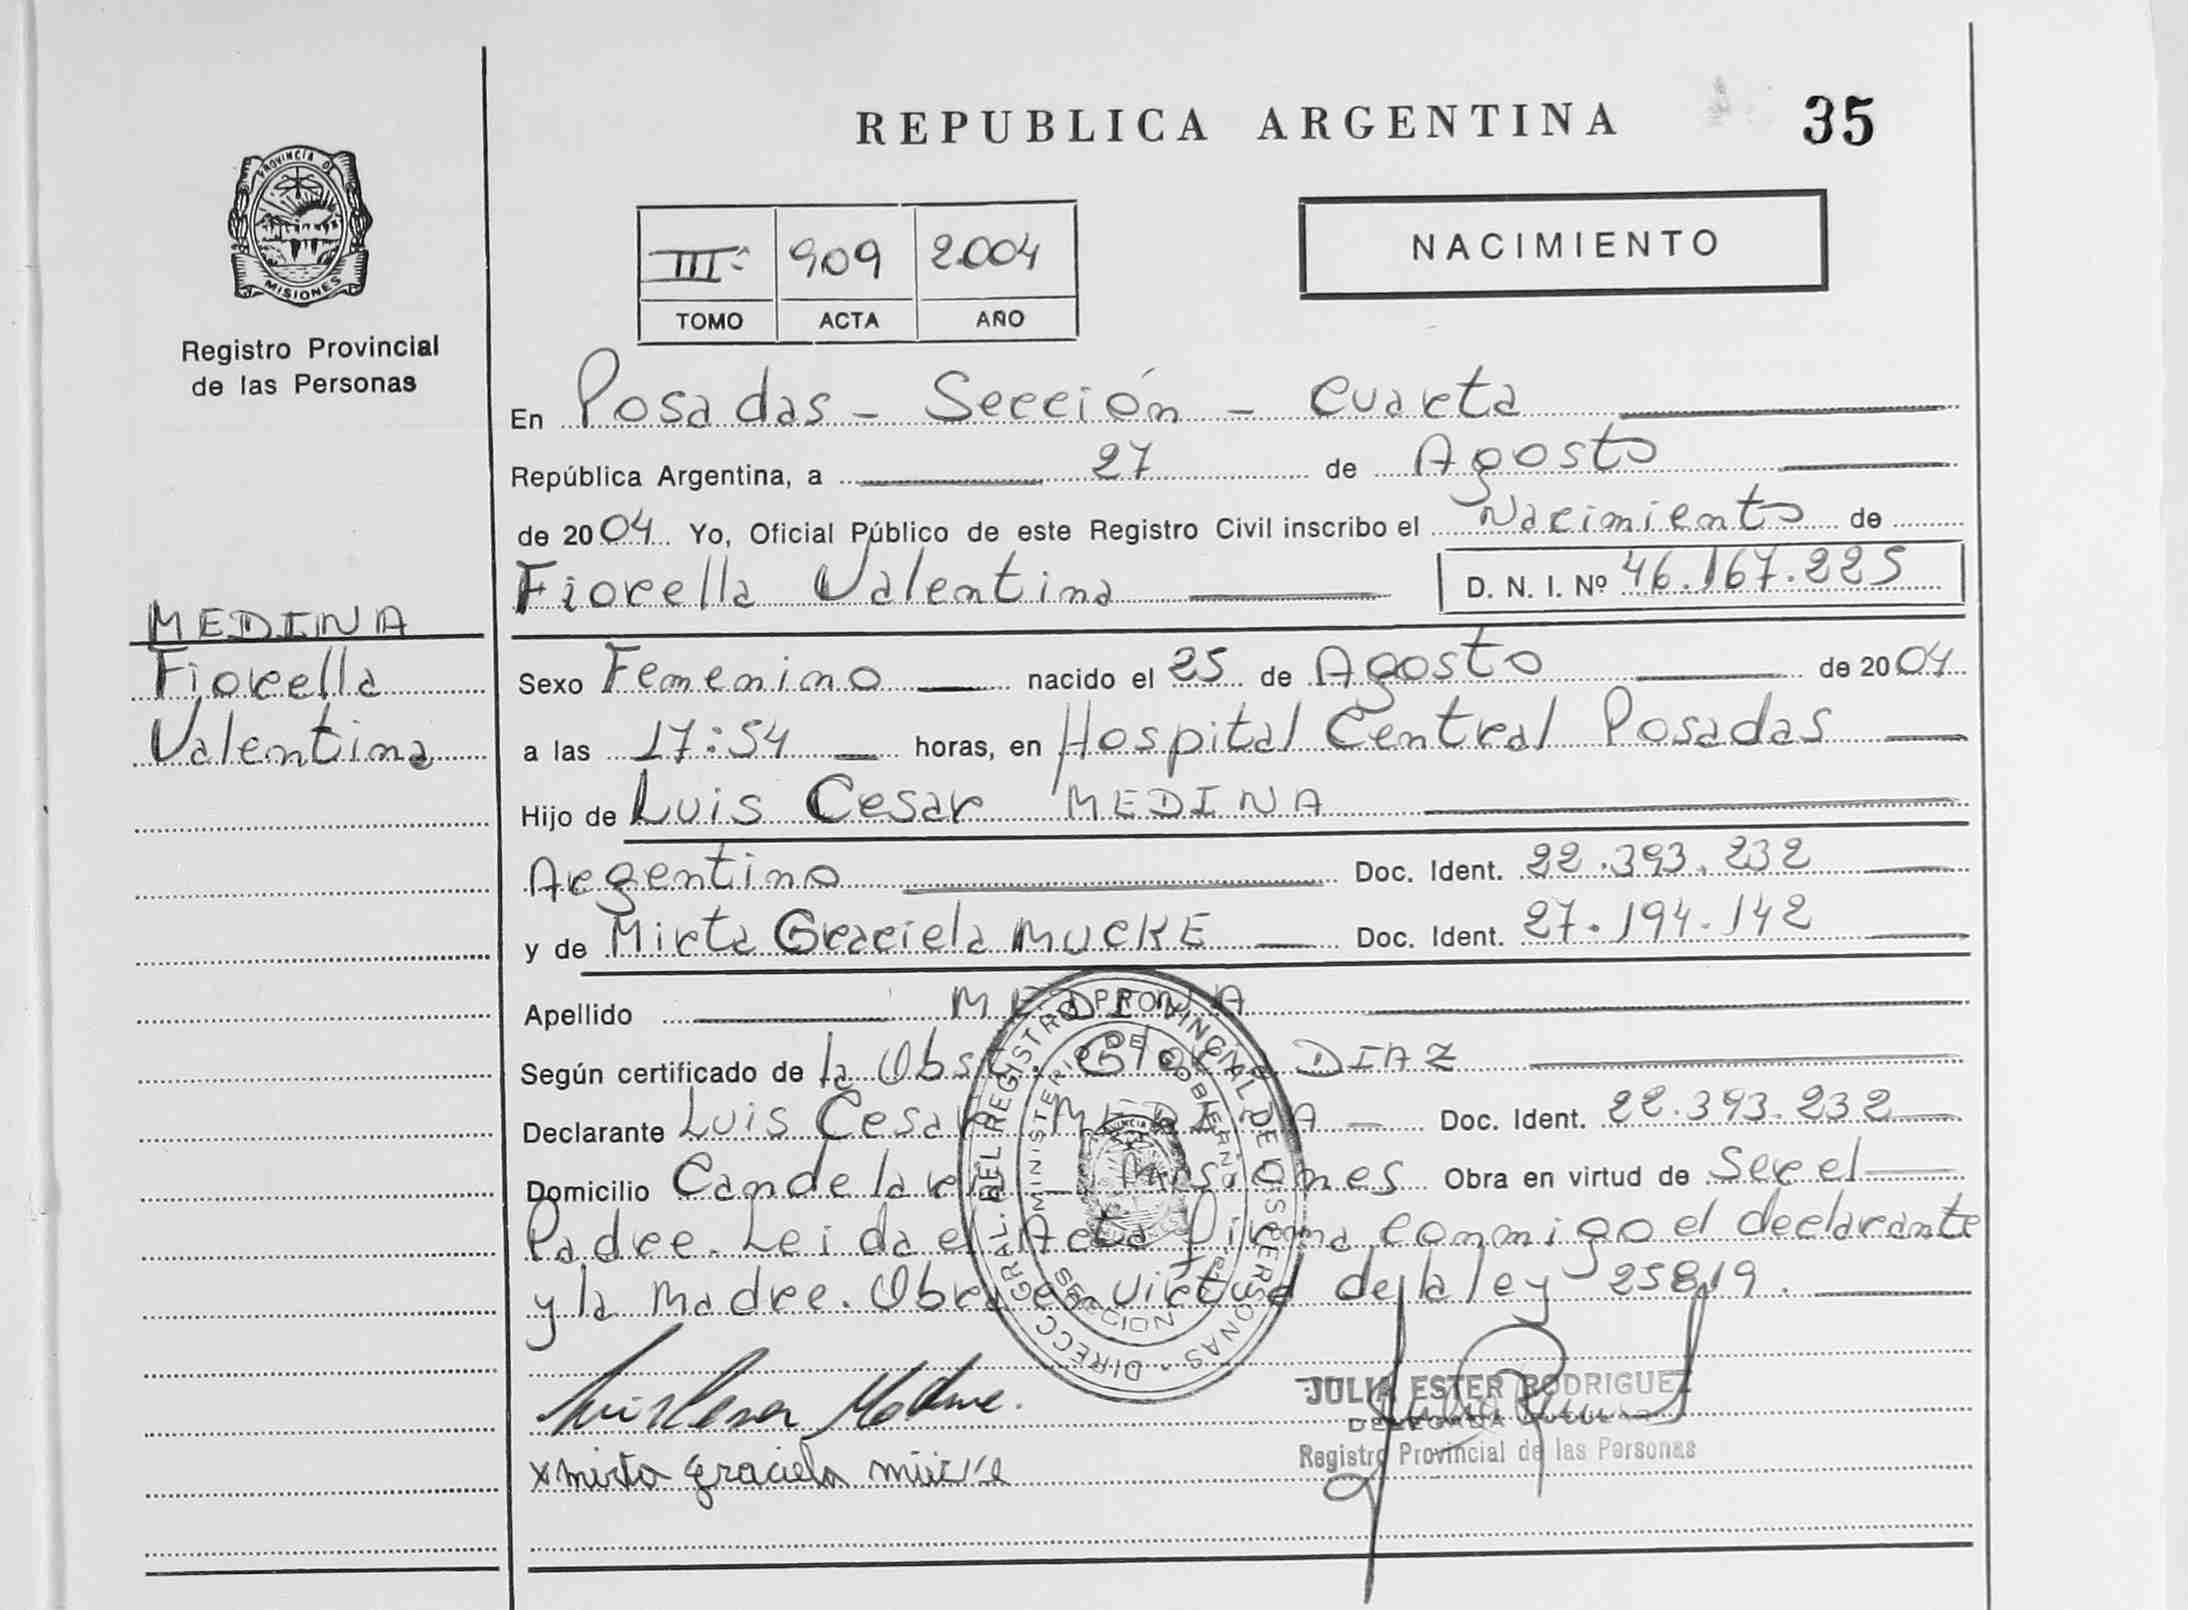 REPUBLICA ARGENTINA 35
PROVINCIA DE
MISIONES
Registro Provincial
de las Personas
III 909 2004
TOMO ACTA AÑO
NACIMIENTO
En Posadas - Sección - Cuarta
República Argentina, a 27 de Agosto
de 2004 Yo, Oficial Público de este Registro Civil inscribo el Nacimiento de
Fiorella Valentina D. N. I. Nº 46.167.225
MEDINA
Fiorella
Valentina
Sexo Femenino nacido el 25 de Agosto de 2004
a las 17:54 horas, en Hospital Central Posadas
Hijo de Luis Cesar MEDINA
Argentino Doc. Ident. 22.393.232
y de Mirta Graciela MUCKE Doc. Ident. 27.194.142
Apellido MEDINA
Según certificado de la Obst. Gloria DIAZ
Declarante Luis Cesar MEDINA Doc. Ident. 22.393.232
Domicilio Candelaria - Misiones Obra en virtud de Ser el
Padre. Leida el Acta Firma conmigo el declarante
y la madre. Obra en virtud de la ley 25819.
DIRECC. GRAL. DEL REGISTRO PROVINCIAL DE LAS PERSONAS
MINISTERIO DE GOBIERNO
Luis Cesar Medina.
x mirta graciela mücke
JULIA ESTER RODRIGUEZ
DELEGADA
Registro Provincial de las Personas